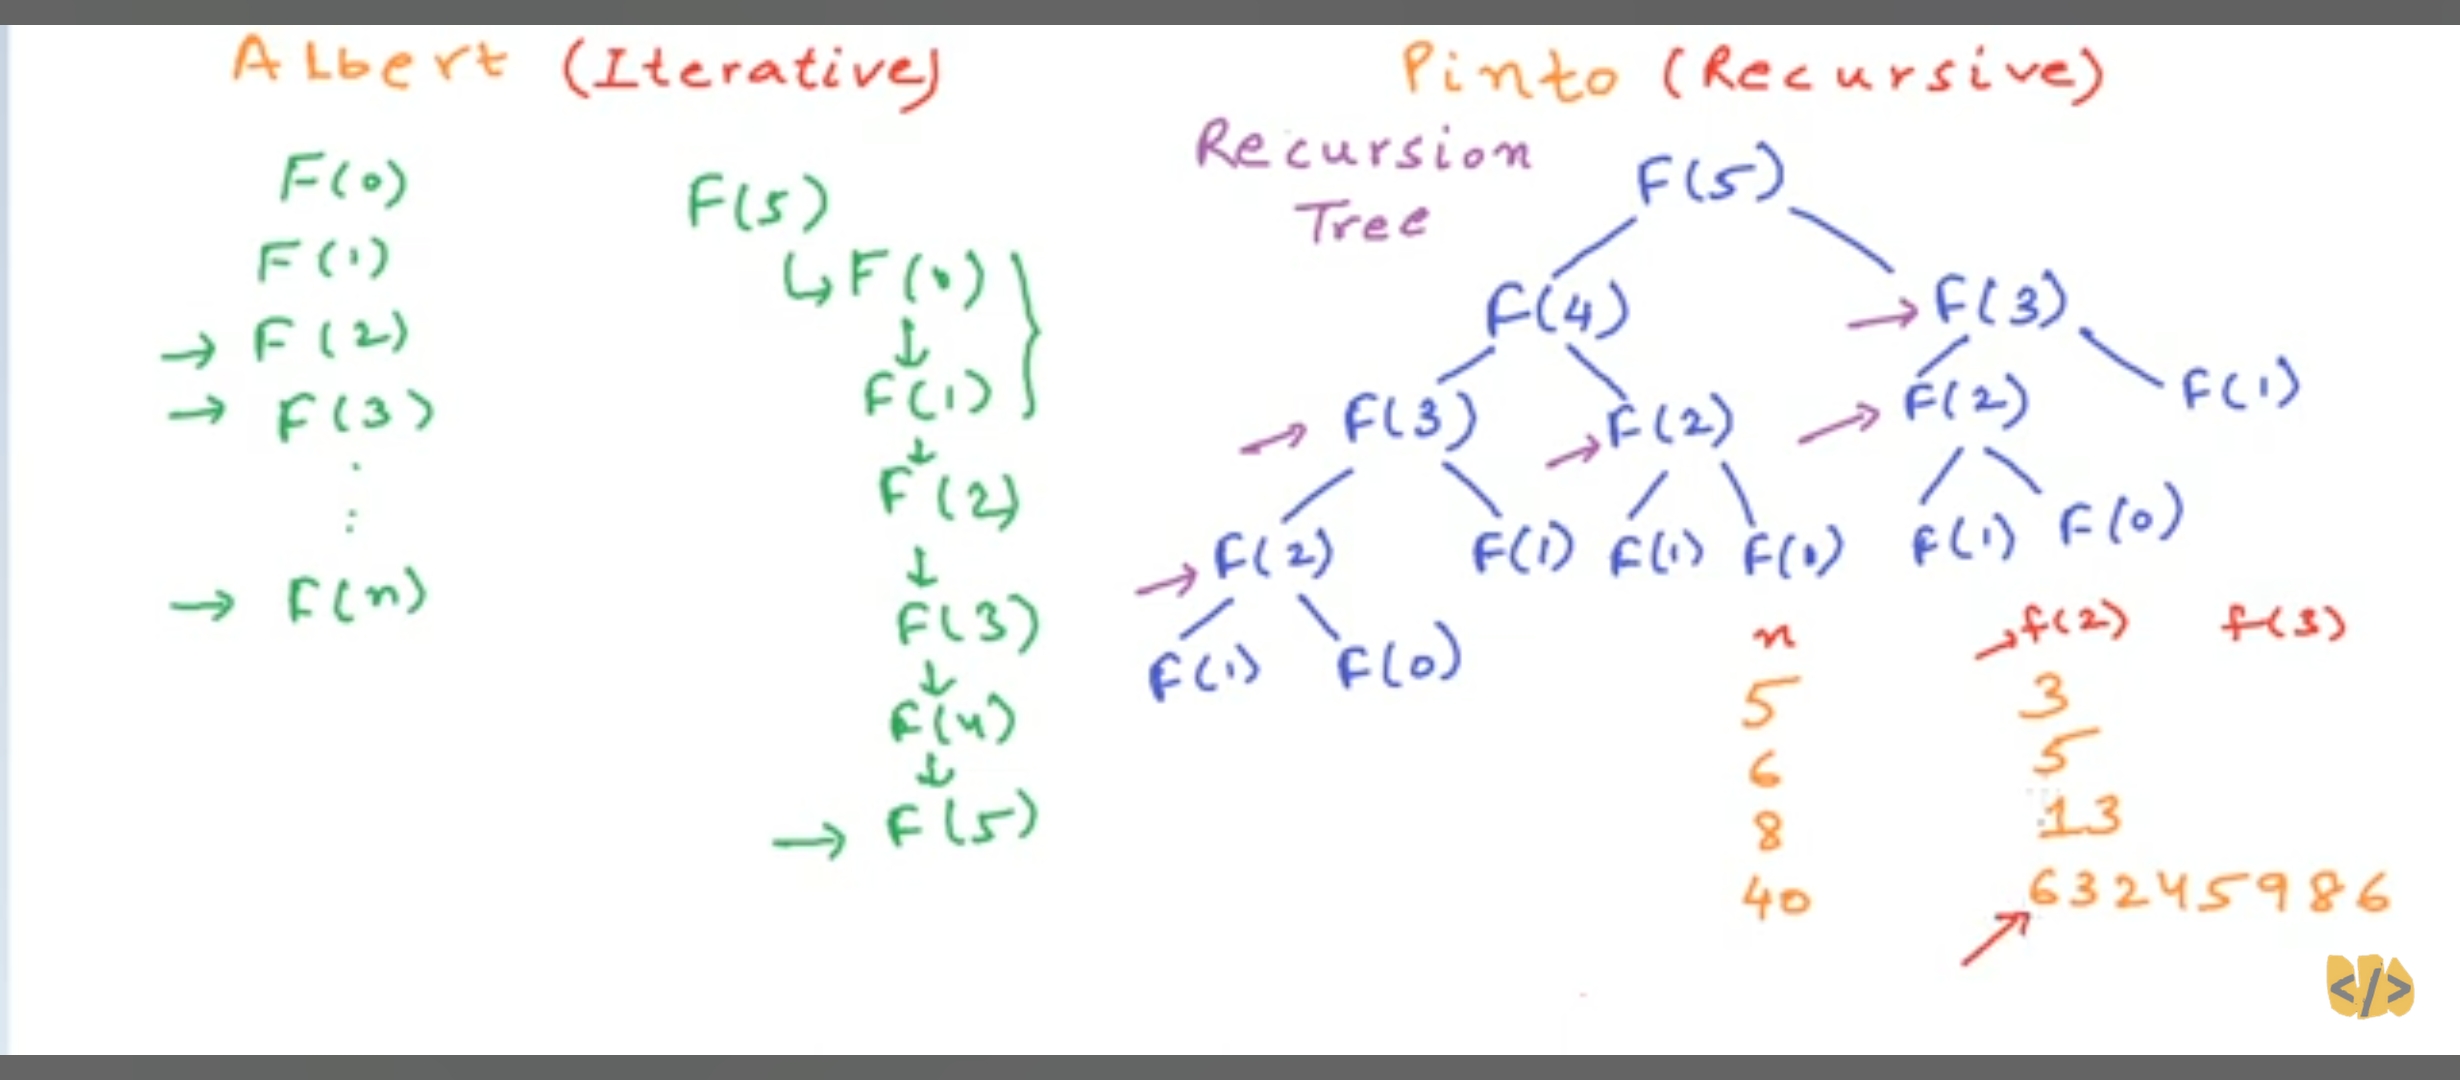 Albert (Iterative)
F(0)
F(1)
→ F(2)
→ F(3)
.
:
→ F(n)
F(5)
↳ F(0) }
↓
F(1)
↓
F(2)
↓
F(3)
↓
F(4)
↓
→ F(5)
Pinto (Recursive)
Recursion
Tree
F(5)
F(4) → F(3)
→ F(3) → F(2) → F(2) F(1)
→ F(2) F(1) F(1) F(0) F(1) F(0)
F(1) F(0)
n → f(2) f(3)
5 3
6 5
8 13
40 63245986
</>